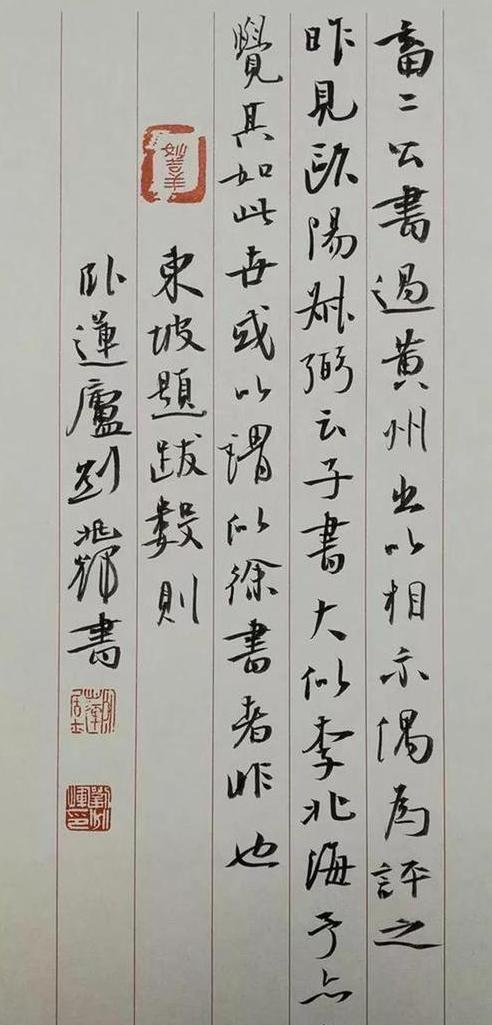 畜二公書過黄州出以相示偶為評之
昨見歐陽叔弼云子書大似李北海予亦
覺其如此世或以謂似徐書者非也
東坡題跋數則
卧蓮廬劉兆輝書